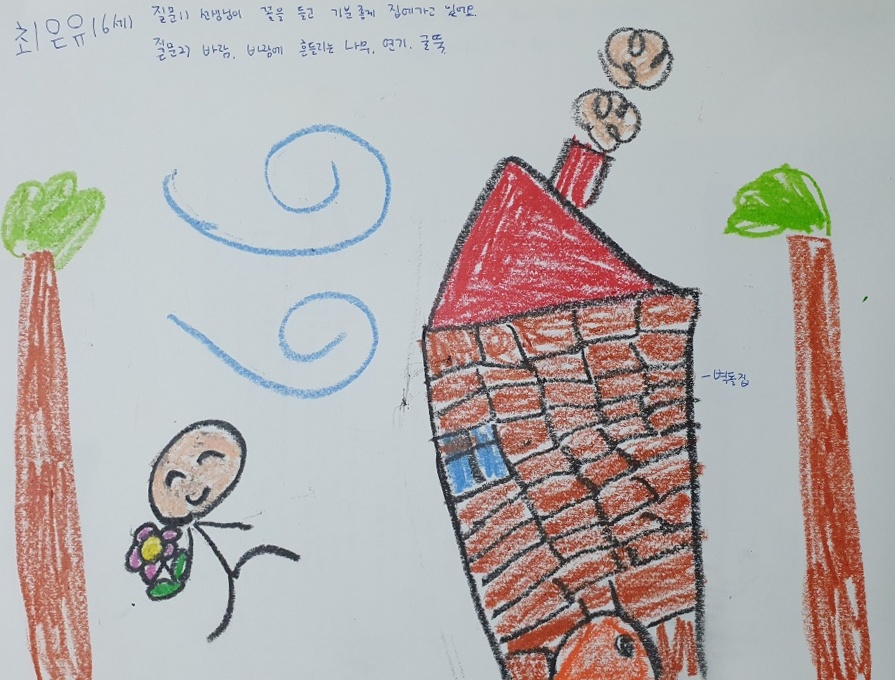 최은유(6세) 질문1) 선생님이 꽃을 들고 기분좋게 집에가고 있어요.
질문2) 바람, 바람에 흔들리는 나무, 연기, 굴뚝
-벽돌집